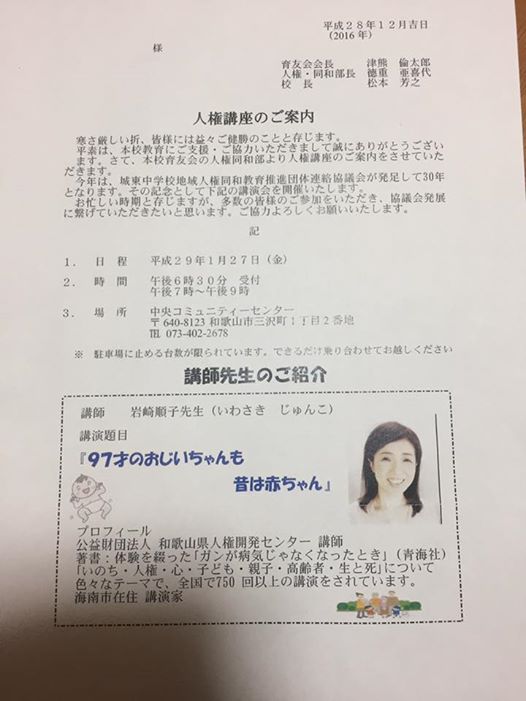 平成28年12月吉日
(2016年)
様
育友会会長 津熊 倫太郎
人権・同和部長 徳重 亜喜代
校 長 松本 芳之
人権講座のご案内
寒さ厳しい折、皆様には益々ご健勝のことと存じます。
平素は、本校教育にご支援・ご協力いただきまして誠にありがとうござい
ます。さて、本校育友会の人権同和部より人権講座のご案内をさせていた
だきます。
今年は、城東中学校地域人権同和教育推進団体連絡協議会が発足して30年
となります。その記念として下記の講演会を開催いたします。
お忙しい時期と存じますが、多数の皆様のご参加をいただき、協議会発展
に繋げていただきたいと思います。ご協力よろしくお願いいたします。
記
1. 日 程 平成29年1月27日(金)
2. 時 間 午後6時30分 受付
午後7時~午後9時
3. 場 所 中央コミュニティーセンター
〒640-8123 和歌山市三沢町1丁目2番地
℡ 073-402-2678
※ 駐車場に止める台数が限られています。できるだけ乗り合わせてお越しください
講師先生のご紹介
講師 岩崎順子先生(いわさき じゅんこ)
講演題目
『97才のおじいちゃんも
昔は赤ちゃん』
プロフィール
公益財団法人 和歌山県人権開発センター 講師
著書:体験を綴った「ガンが病気じゃなくなったとき」(青海社)
「いのち・人権・心・子ども・親子・高齢者・生と死」について
色々なテーマで、全国で750 回以上の講演をされています。
海南市在住 講演家